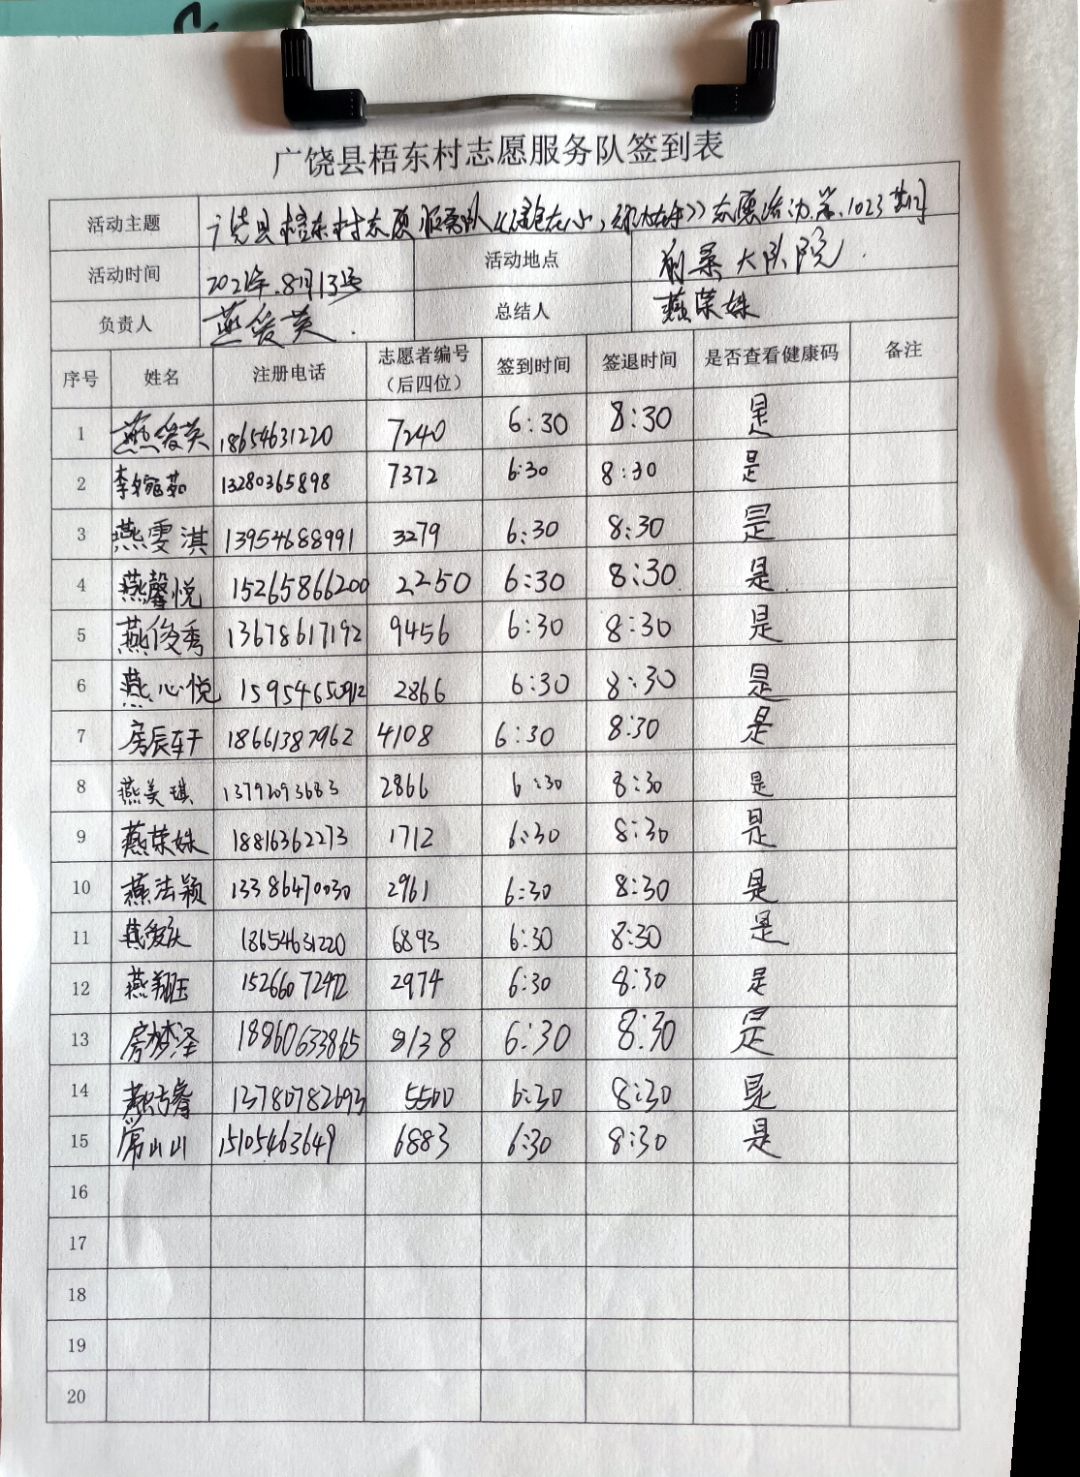 广饶县梧东村志愿服务队签到表
活动主题 广饶县梧东村志愿服务队 志愿活动第1023期
活动时间 2021年.8月13号 活动地点 前桑大队院
负责人 燕爱英 总结人 燕荣姝
序号 姓名 注册电话 志愿者编号(后四位) 签到时间 签退时间 是否查看健康码 备注
1 燕爱英 18654631220 7240 6:30 8:30 是
2 李婉茹 13280365898 7372 6:30 8:30 是
3 燕雯淇 13954688991 3279 6:30 8:30 是
4 燕馨悦 15265866200 2250 6:30 8:30 是
5 燕俊秀 13678617192 9456 6:30 8:30 是
6 燕心悦 15954650912 2866 6:30 8:30 是
7 房辰轩 18661387962 4108 6:30 8:30 是
8 燕美琪 13792093683 2866 6:30 8:30 是
9 燕荣姝 18816362273 1712 6:30 8:30 是
10 燕法颖 13386470030 2961 6:30 8:30 是
11 燕爱庆 18654631220 6893 6:30 8:30 是
12 燕翔玉 15266072472 2974 6:30 8:30 是
13 房梦泽 18860633865 8138 6:30 8:30 是
14 燕 睿 13780782693 5500 6:30 8:30 是
15 常山山 15105463649 6883 6:30 8:30 是
16
17
18
19
20